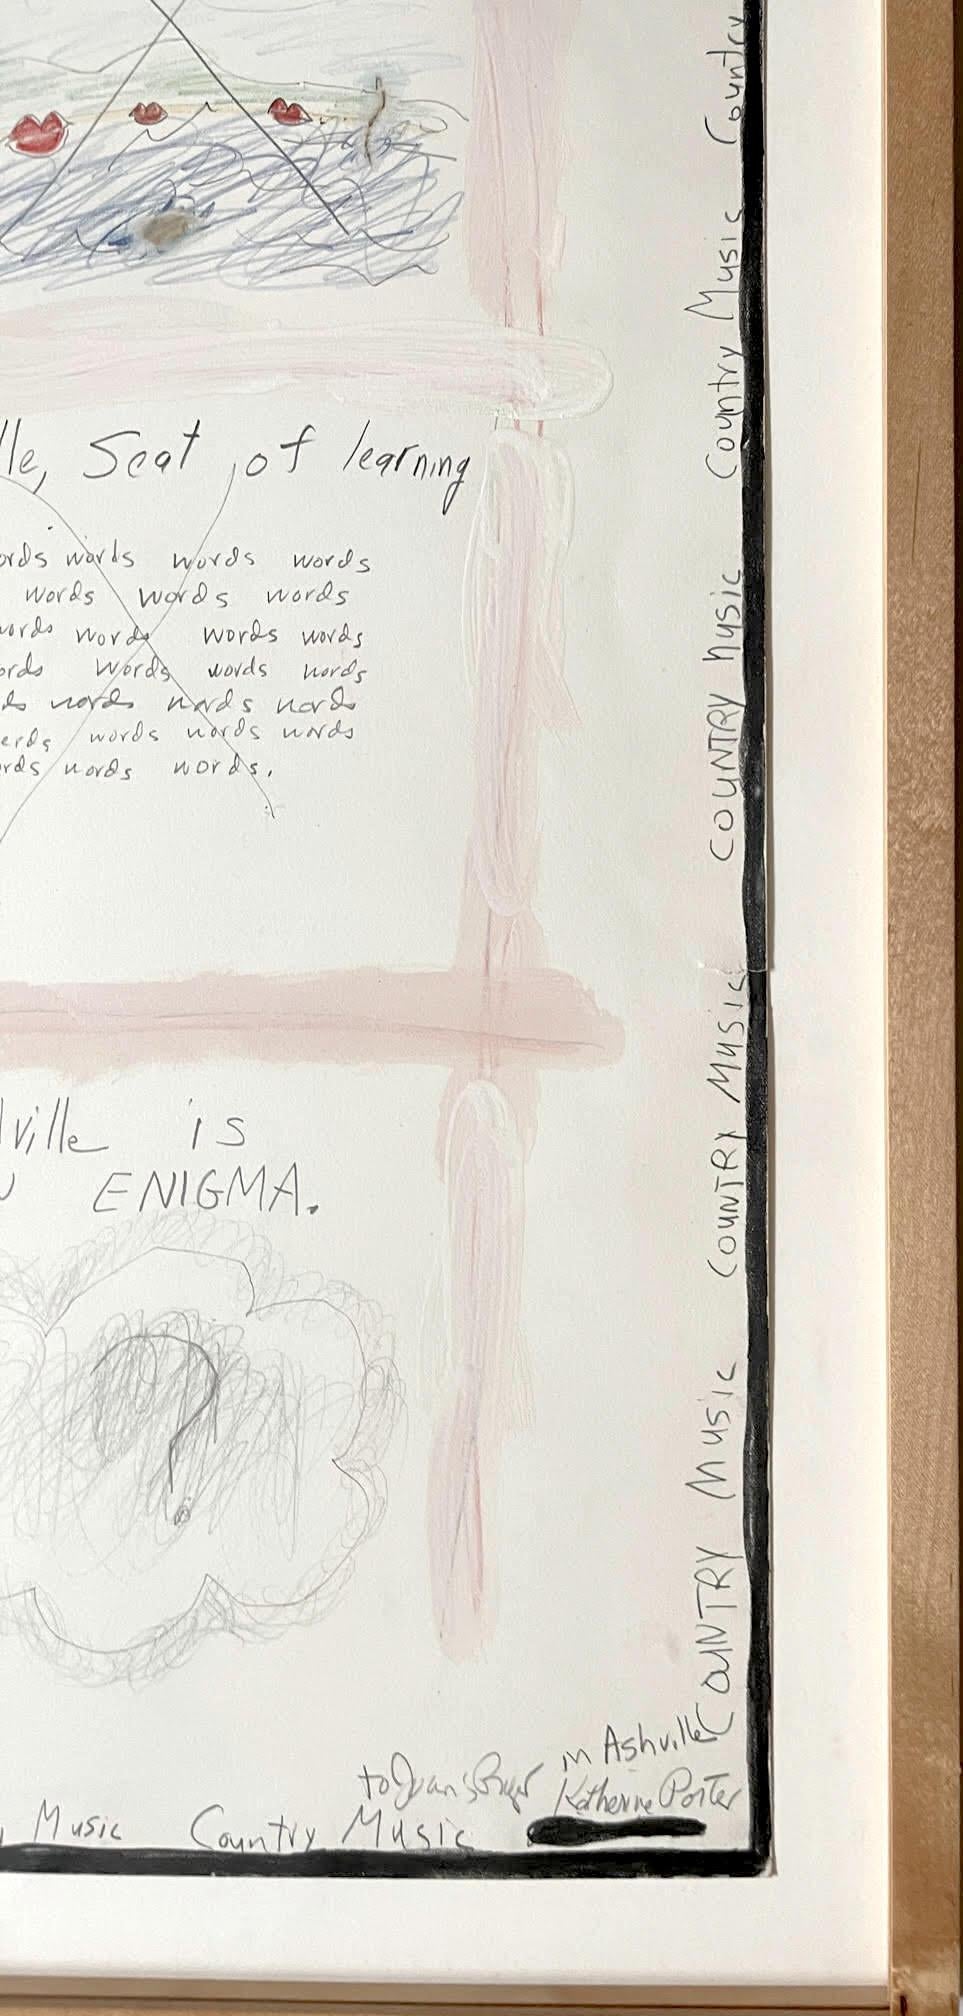 lle, Seat of learning
ords words words words
words words words
words words words words
ords words words words
ds words words words
erds words words words
rds words words.
ville is
ENIGMA.
?
Country Music Country Music Country Music Country Music Country Music Country
in Ashville
to Joan Katherine Porter
Music Country Music